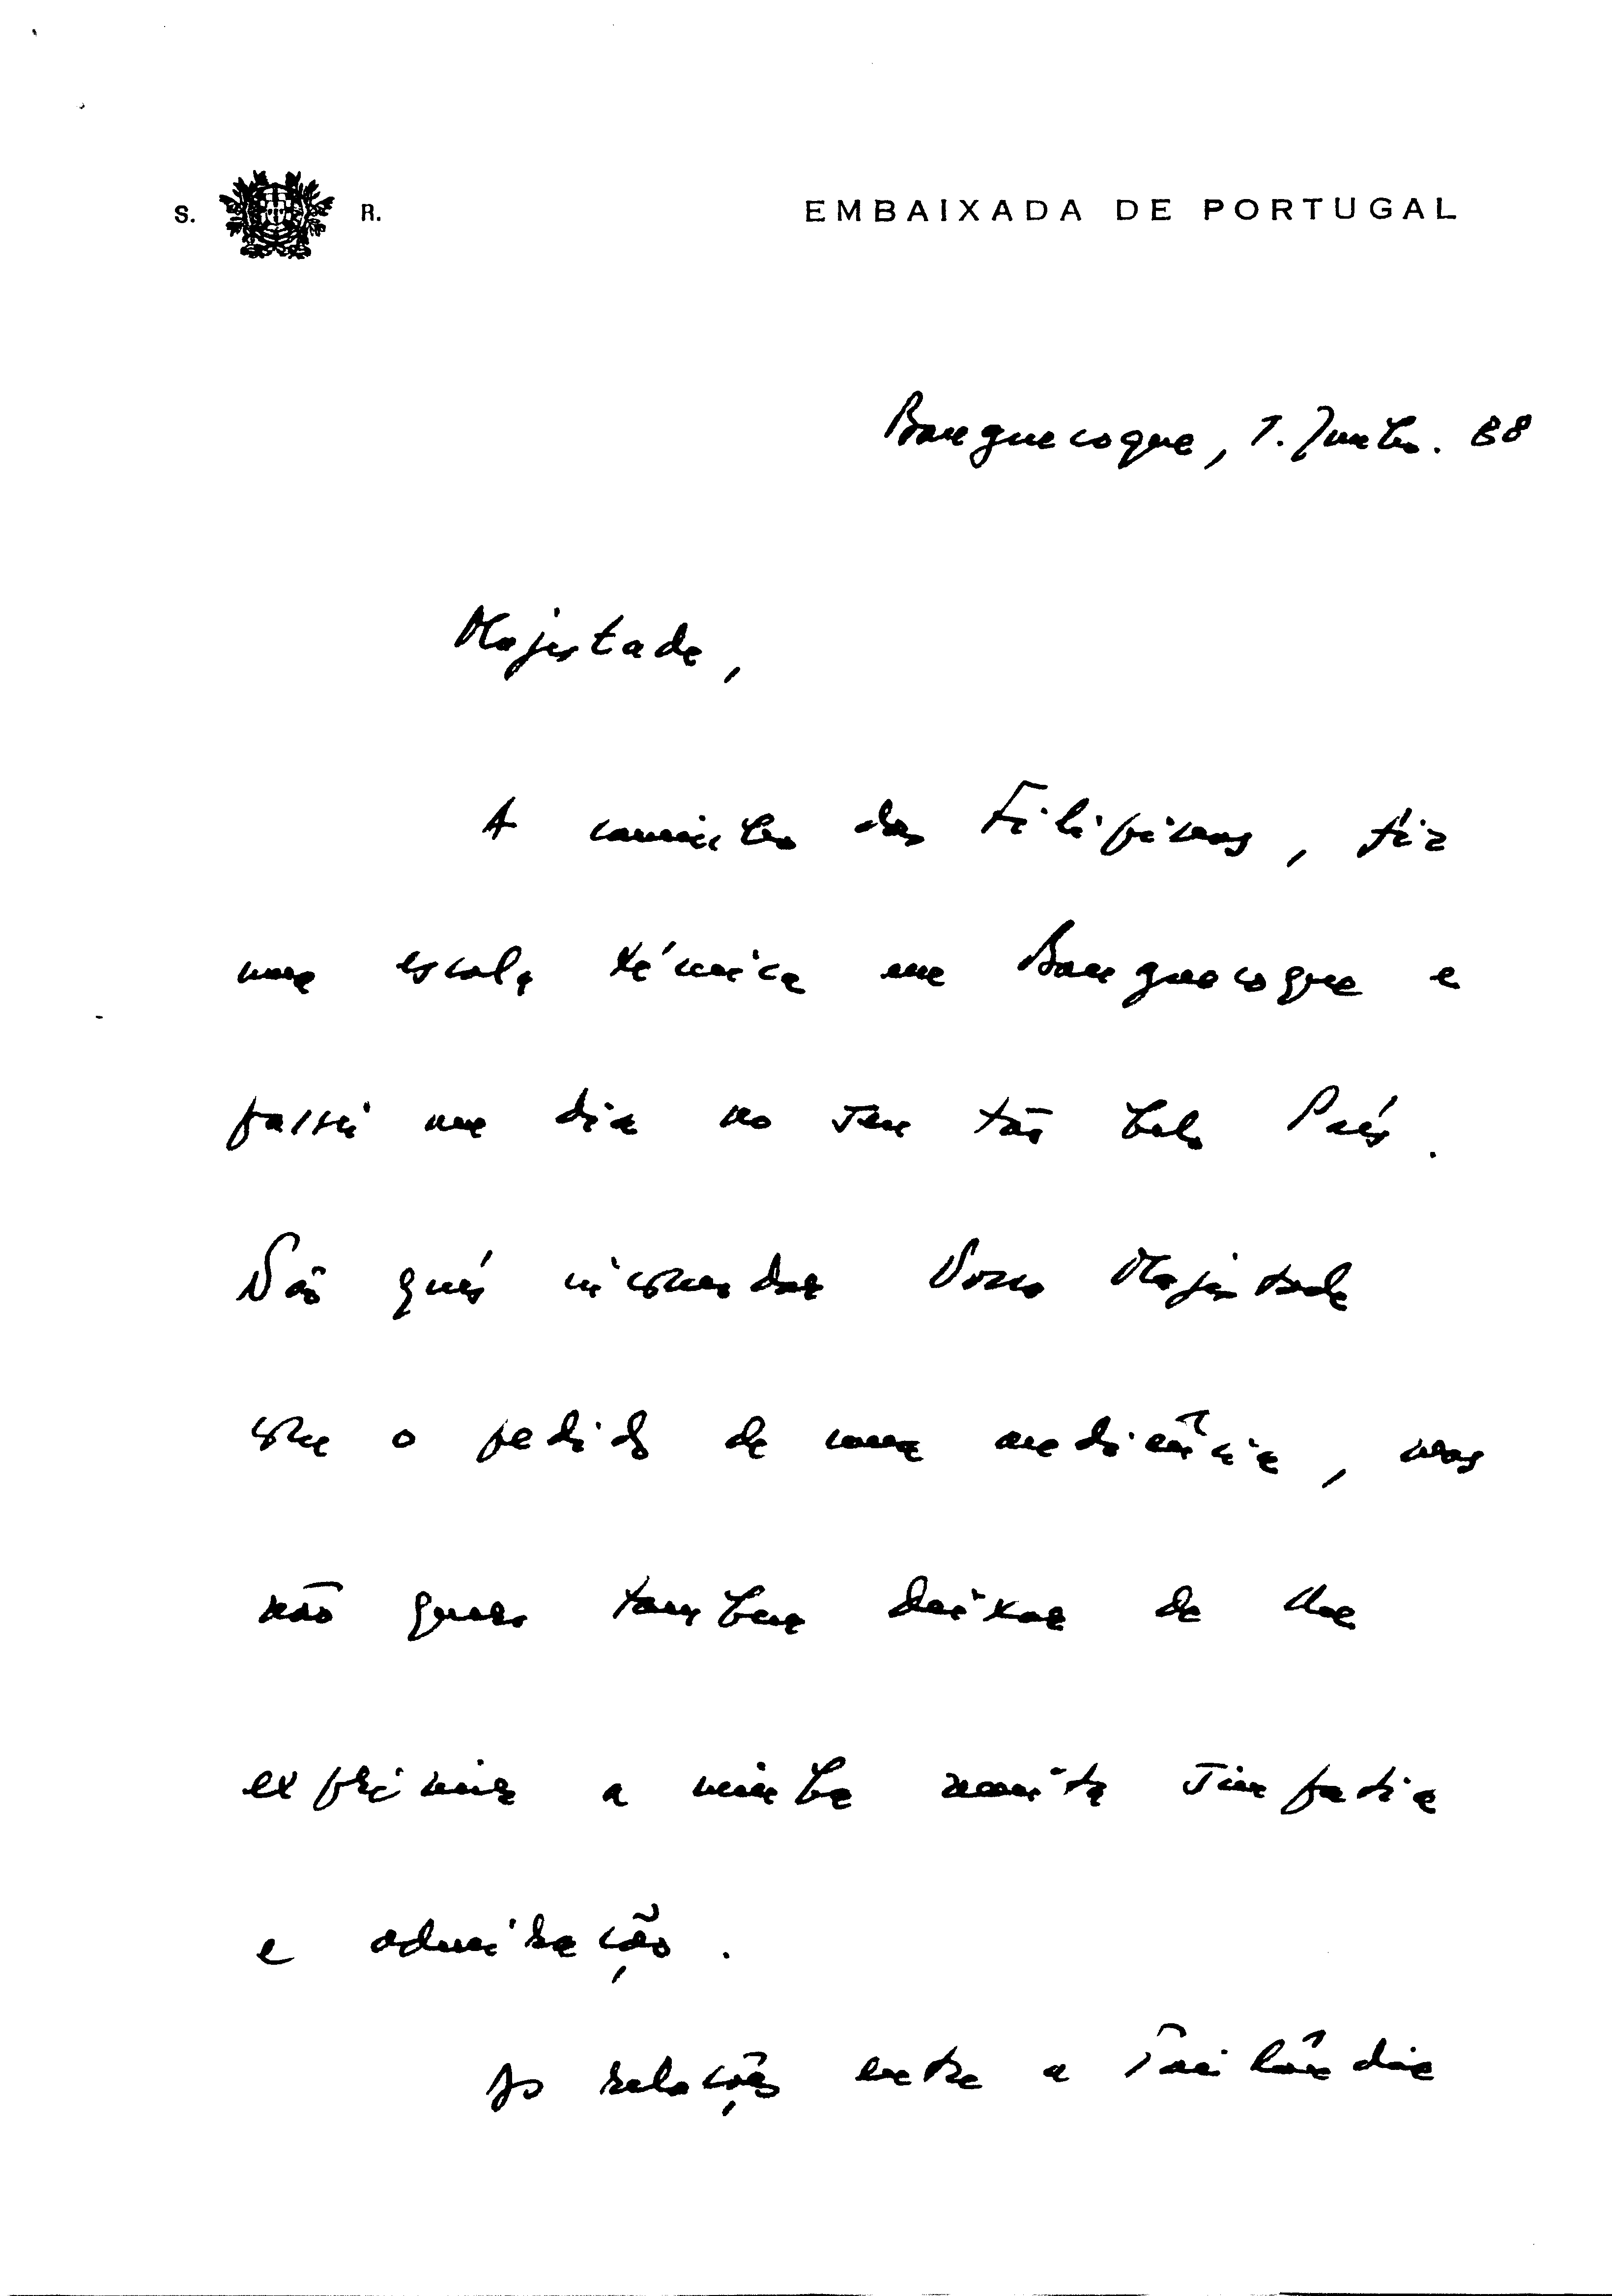 S. R. EMBAIXADA DE PORTUGAL
Banguecoque, 1. Junho. 88
Majestade,
A caminho das Filipinas, fiz
uma escala técnica em Banguecoque e
passei um dia no seu tão belo País.
Não quis incomodar Vossa Majestade
com o pedido de uma audiência, mas
não quero também deixar de lhe
exprimir a minha muita simpatia
e admiração.
As relações entre a Tailândia